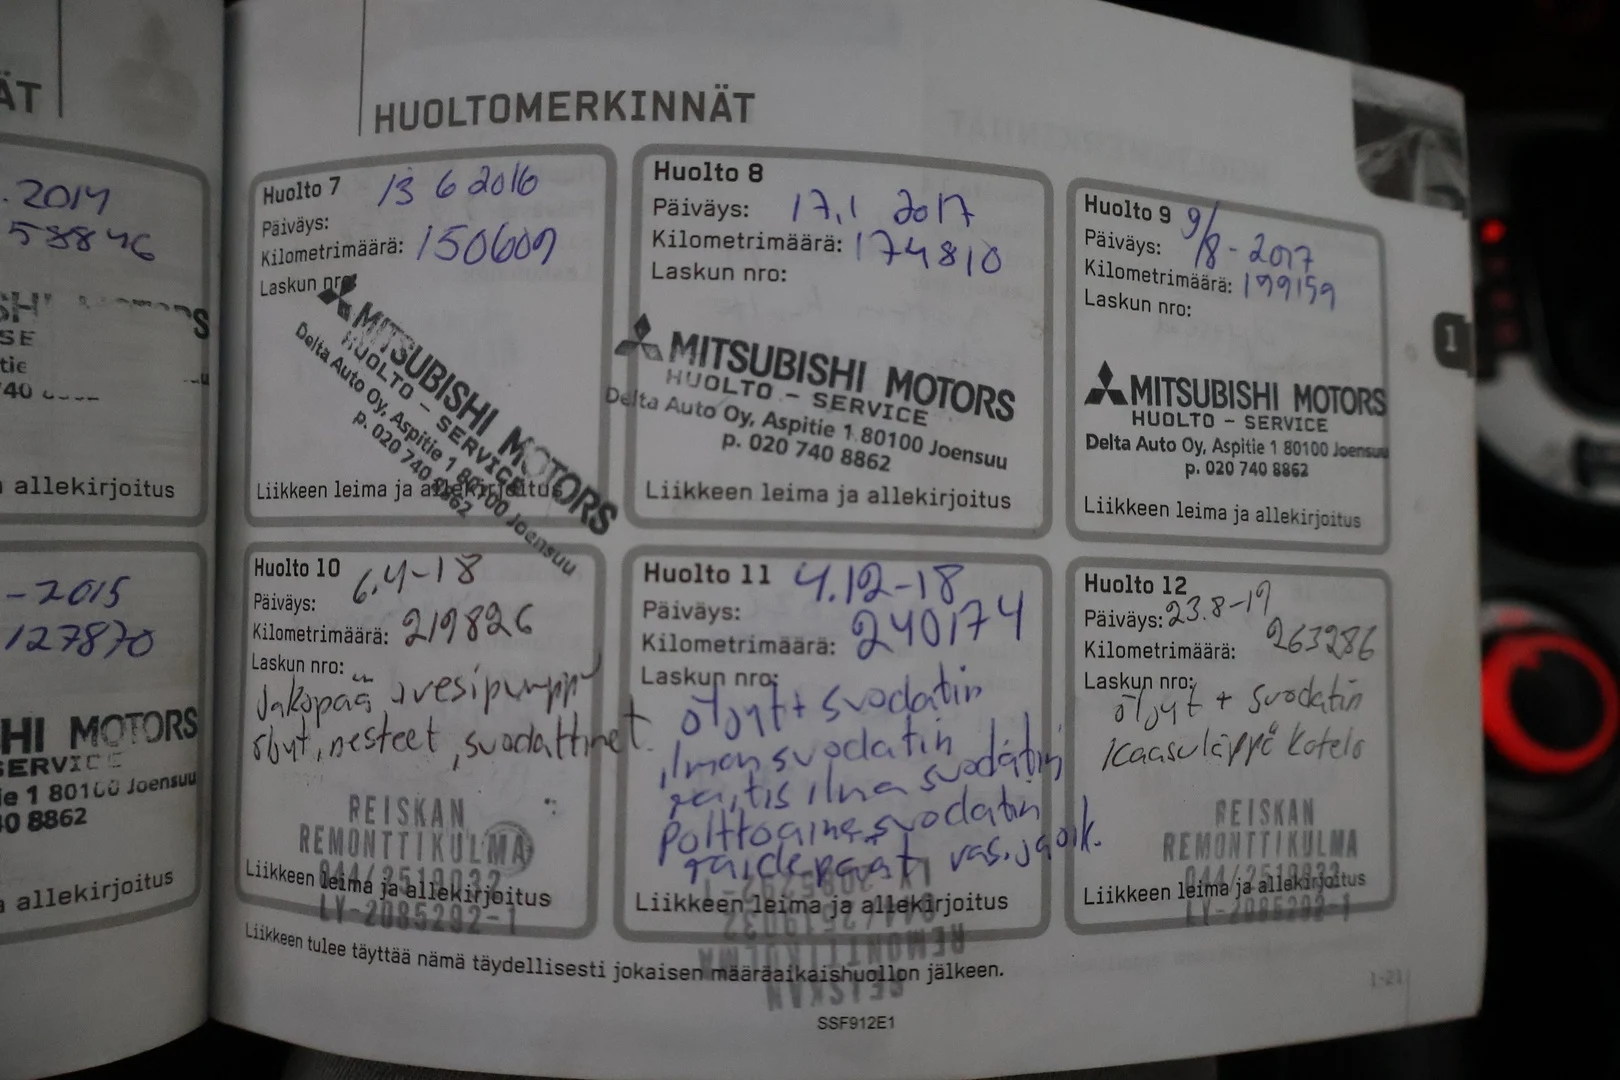 ÄT
.2014
58846
SE
tie
allekirjoitus
-2015
127870
SHI MOTORS
SERVICE
ie 1 80100 Joensuu
40 8862
allekirjoitus
HUOLTOMERKINNÄT
Huolto 7 13 6 2016
Päiväys:
Kilometrimäärä: 150609
Laskun nro
MITSUBISHI MOTORS
HUOLTO - SERVICE
Delta Auto Oy, Aspitie 1 80100 Joensuu
p. 020 740 8862
Liikkeen leima ja allekirjoitus
Huolto 8
Päiväys: 17.1 2017
Kilometrimäärä: 174810
Laskun nro:
MITSUBISHI MOTORS
HUOLTO - SERVICE
Delta Auto Oy, Aspitie 1 80100 Joensuu
p. 020 740 8862
Liikkeen leima ja allekirjoitus
Huolto 9
Päiväys: 9/8-2017
Kilometrimäärä: 199159
Laskun nro:
MITSUBISHI MOTORS
HUOLTO - SERVICE
Delta Auto Oy, Aspitie 1 80100 Joensuu
p. 020 740 8862
Liikkeen leima ja allekirjoitus
1
Huolto 10 6.4-18
Päiväys:
Kilometrimäärä: 219826
Laskun nro:
Jakopää, vesipumppu
öljyt, nesteet, suodattimet.
REISKAN
REMONTTIKULMA
044/2519032
LY-2085292-1
Liikkeen leima ja allekirjoitus
Huolto 11 4.12-18
Päiväys:
Kilometrimäärä: 240174
Laskun nro:
öljyt + suodatin
ilmansuodatin
raitis ilma suodatin
Polttoaine suodatin
raidepäät vas. ja oik.
Liikkeen leima ja allekirjoitus
REISKAN
REMONTTIKULMA
044/2519032
LY-2085292-1
Huolto 12
Päiväys: 23.8-19
Kilometrimäärä: 263286
Laskun nro:
öljyt + suodatin
Kaasuläppä kotelo
REISKAN
REMONTTIKULMA
044/2519032
LY-2085292-1
Liikkeen leima ja allekirjoitus
Liikkeen tulee täyttää nämä täydellisesti jokaisen määräaikaishuollon jälkeen.
1-21
SSF912E1